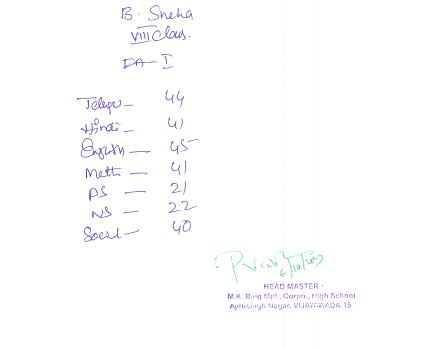 B. Sneha
VIII Class.
FA - I
Telugu - 44
Hindi - 41
English - 45
Maths - 41
PS - 21
NS - 22
Social - 40
HEAD MASTER
M.K. Baig Mpl., Corpn., High School
Ajithsingh Nagar, VIJAYAWADA-15